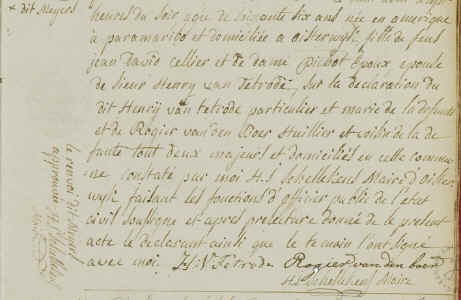 & dit Meyers
heures du soir agee de soixante six ans née en amerique
à paramaribo et domiciliée a oisterwyk fille de feus
jean David Cellier et de dame Pichot Epoux epouse
de sieur Henry van Tetrode sur la declaration du
dit Henrÿ van tetrode particulier et marie de la defunte
et de Rogier van den Boer Huillier et voisin de la de
funte tout deux majeurs et domiciliés en cette commu
ne constaté par moi H.S. Schellekens Maire d'oister
wyk faisant les fonctions d'officier public de l'etat
civil soussigne et apres prelecture donnée de le present
acte le declarant ainsi que le temoin l'ont signé
avec moi. H: V. Tetrode Rogier van den boer
H.S. Schellekens Maire
le renvoi dit Meyers
approuvé H.S. Schellekens
Maire